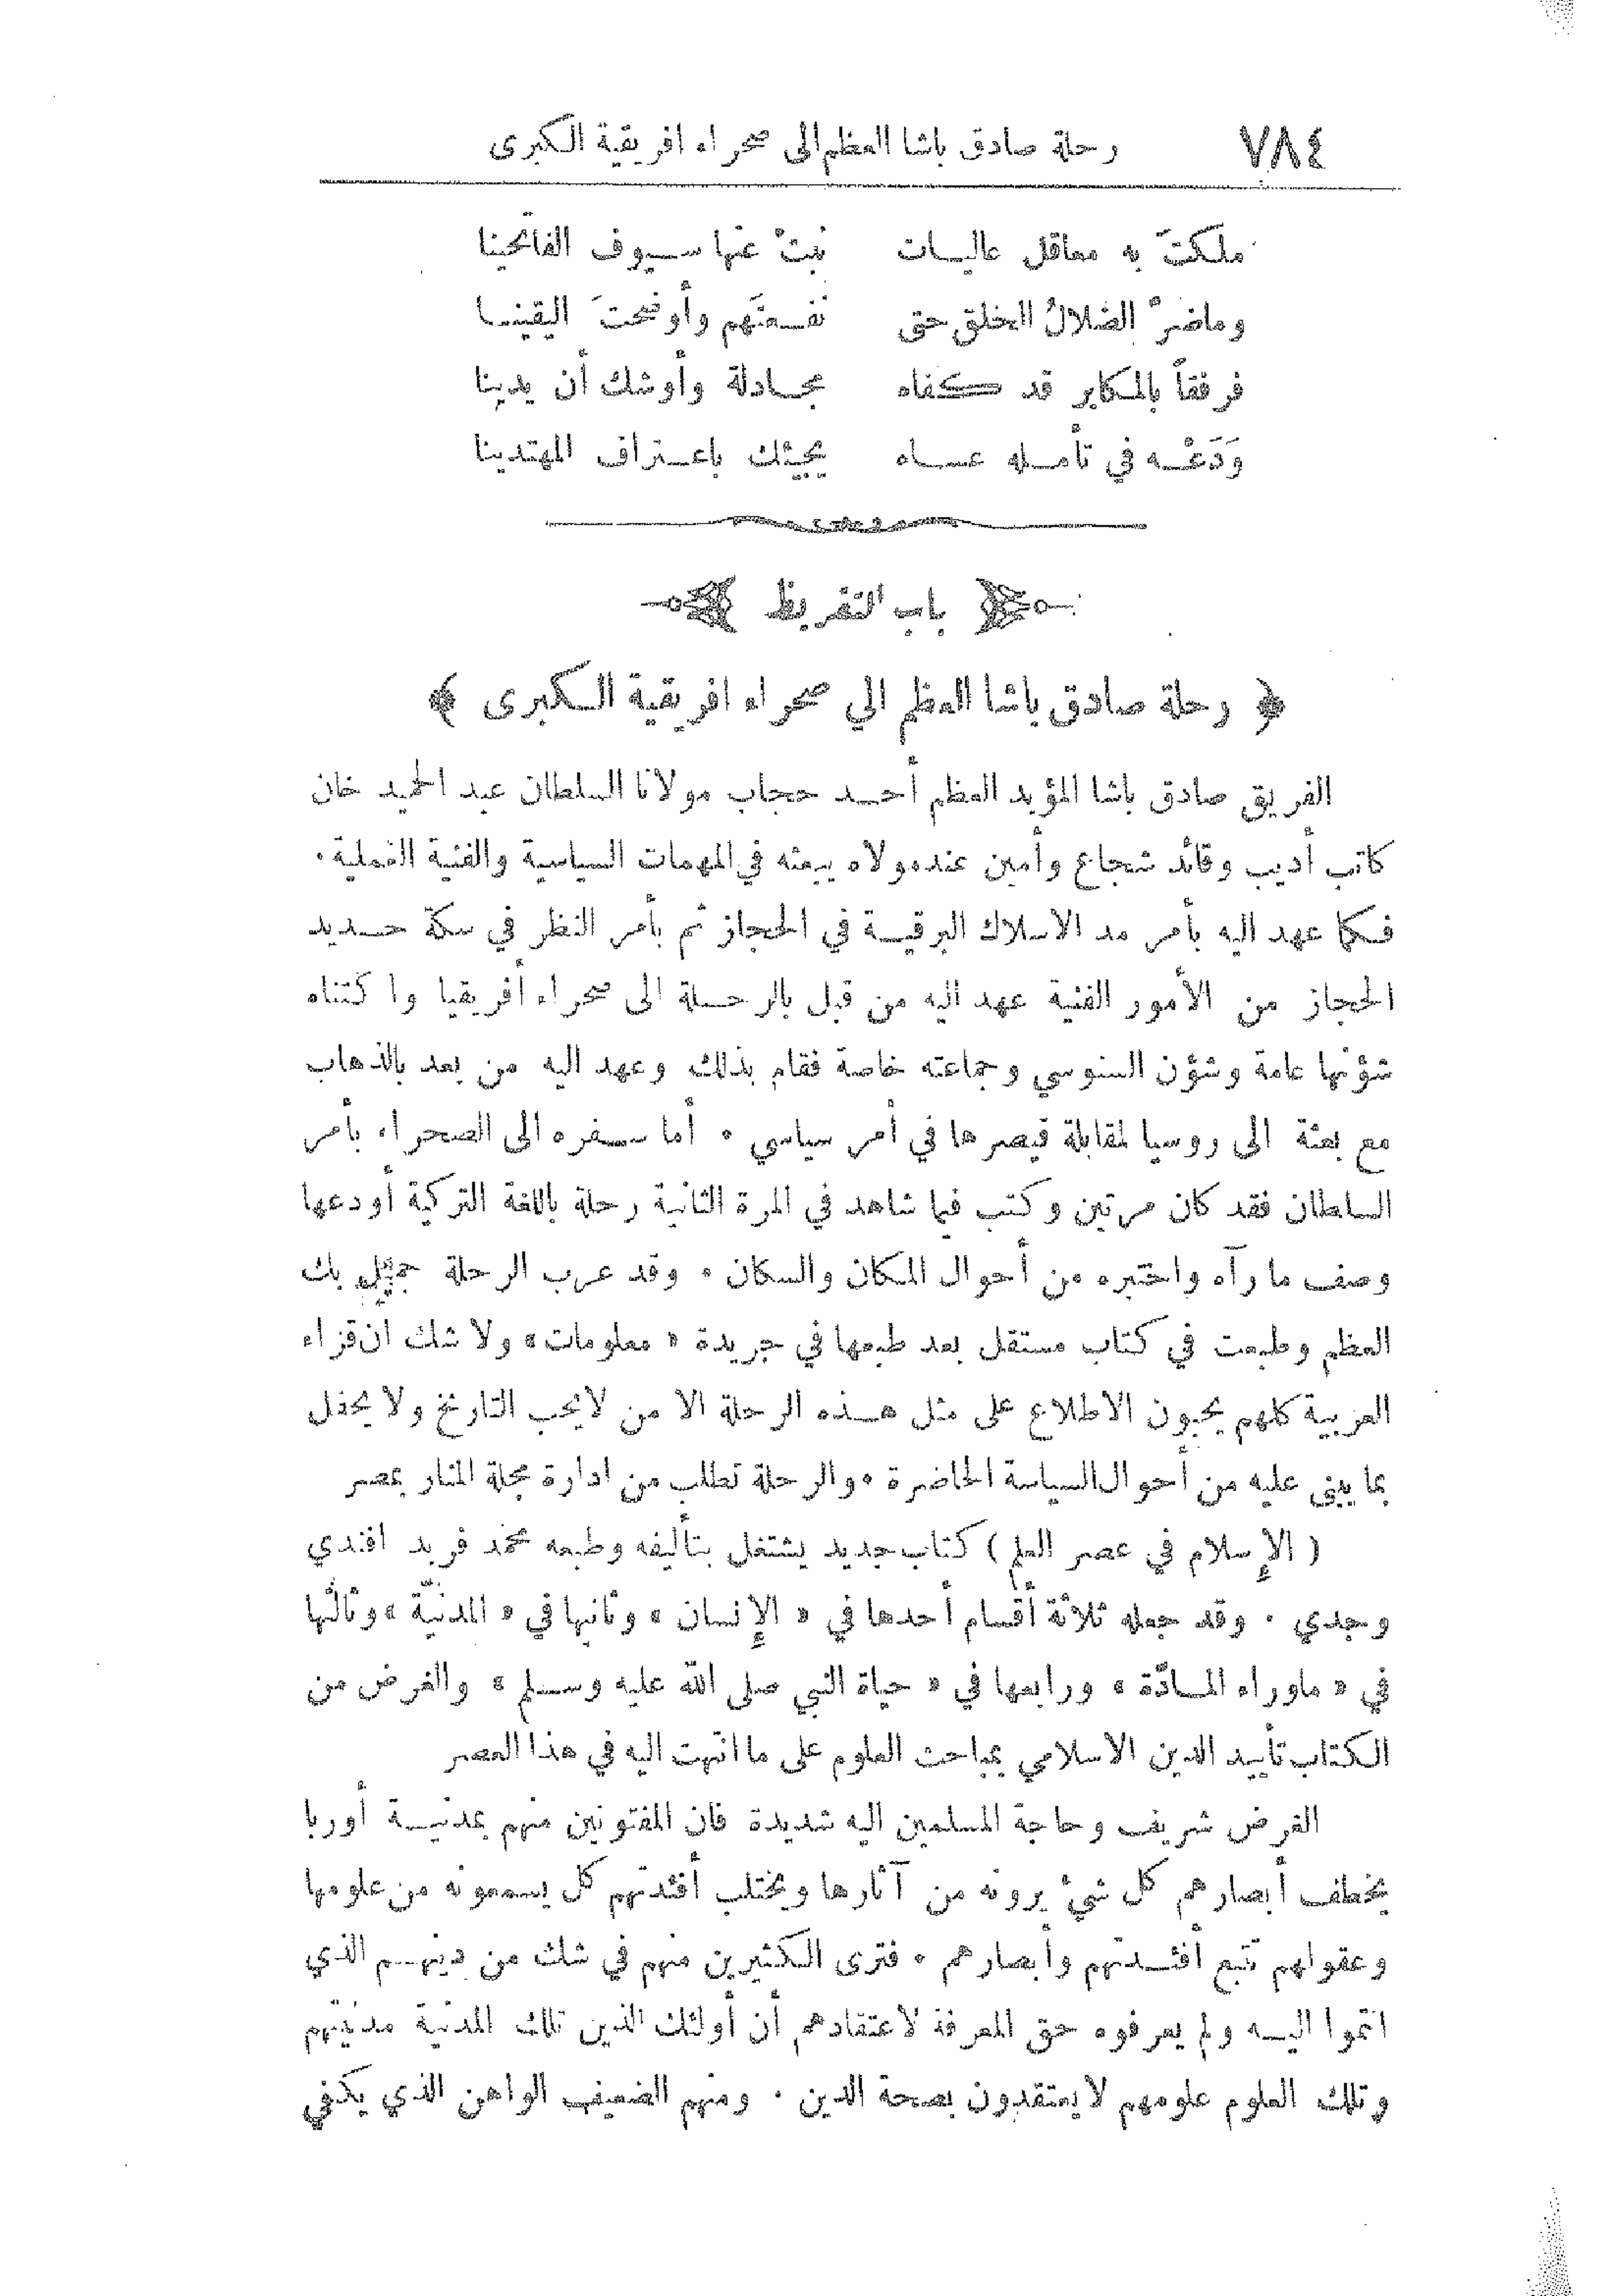 ٧٨٤ رحلة صادق باشا العظم الى صحراء افريقية الكبرى
ملكتَ به معاقل عاليات نبتْ عنها سيوف الفاتحينا
وماضرّ الضلالُ الخلق حتى نفعتَهم وأوضحتَ اليقينا
فرفقاً بالمكابر قد كفاه مجادلة وأوشك أن يدينا
وَدَعْه في تأمله عساه يجيئك باعتراف المهتدينا
باب التقريظ
﴿ رحلة صادق باشا العظم الي صحراء افريقية الكبرى ﴾
الفريق صادق باشا المؤيد العظم أحد حجاب مولانا السلطان عبد الحميد خان
كاتب أديب وقائد شجاع وأمين عندمولاه يبعثه في المهمات السياسية والفنية العملية.
فكما عهد اليه بأمر مد الاسلاك البرقية في الحجاز ثم بأمر النظر في سكة حديد
الحجاز من الأمور الفنية عهد اليه من قبل بالرحلة الى صحراء أفريقيا واكتناه
شؤنها عامة وشؤن السنوسي وجماعته خاصة فقام بذلك وعهد اليه من بعد بالذهاب
مع بعثة الى روسيا لمقابلة قيصرها في أمر سياسي . أما سفره الى الصحراء بأمر
السلطان فقد كان مرتين وكتب فيما شاهد في المرة الثانية رحلة باللغة التركية أودعها
وصف ما رآه واختبره من أحوال المكان والسكان . وقد عرب الرحلة جميل بك
العظم وطبعت في كتاب مستقل بعد طبعها في جريدة « معلومات » ولا شك ان قراء
العربية كلهم يحبون الاطلاع على مثل هذه الرحلة الا من لايحب التاريخ ولا يحفل
بما يبنى عليه من أحوال السياسة الحاضرة . والرحلة تطلب من ادارة مجلة المنار بمصر
( الإسلام في عصر العلم ) كتاب جديد يشتغل بتأليفه وطبعه محمد فريد افندي
وجدي . وقد جعله ثلاثة أقسام أحدها في « الإنسان » وثانيها في « المدنيّة » وثالثها
في « ماوراء المادّة » ورابعها في « حياة النبي صلى الله عليه وسلم » والغرض من
الكتاب تأييد الدين الاسلامي بمباحث العلوم على ما انتهت اليه في هذا العصر
الغرض شريف وحاجة المسلمين اليه شديدة فان المفتونين منهم بمدنية أوربا
يخطف أبصارهم كل شيْ يرونه من آثارها ويختلب أفئدتهم كل يسمعونه من علومها
وعقولهم تتبع أفئدتهم وأبصارهم . فترى الكثيرين منهم في شك من دينهم الذي
انتموا اليه ولم يعرفوه حق المعرفة لاعتقادهم أن أولئك الذين تلك المدنية مدنيتهم
وتلك العلوم علومهم لايعتقدون بصحة الدين . ومنهم الضعيف الواهن الذي يكفي